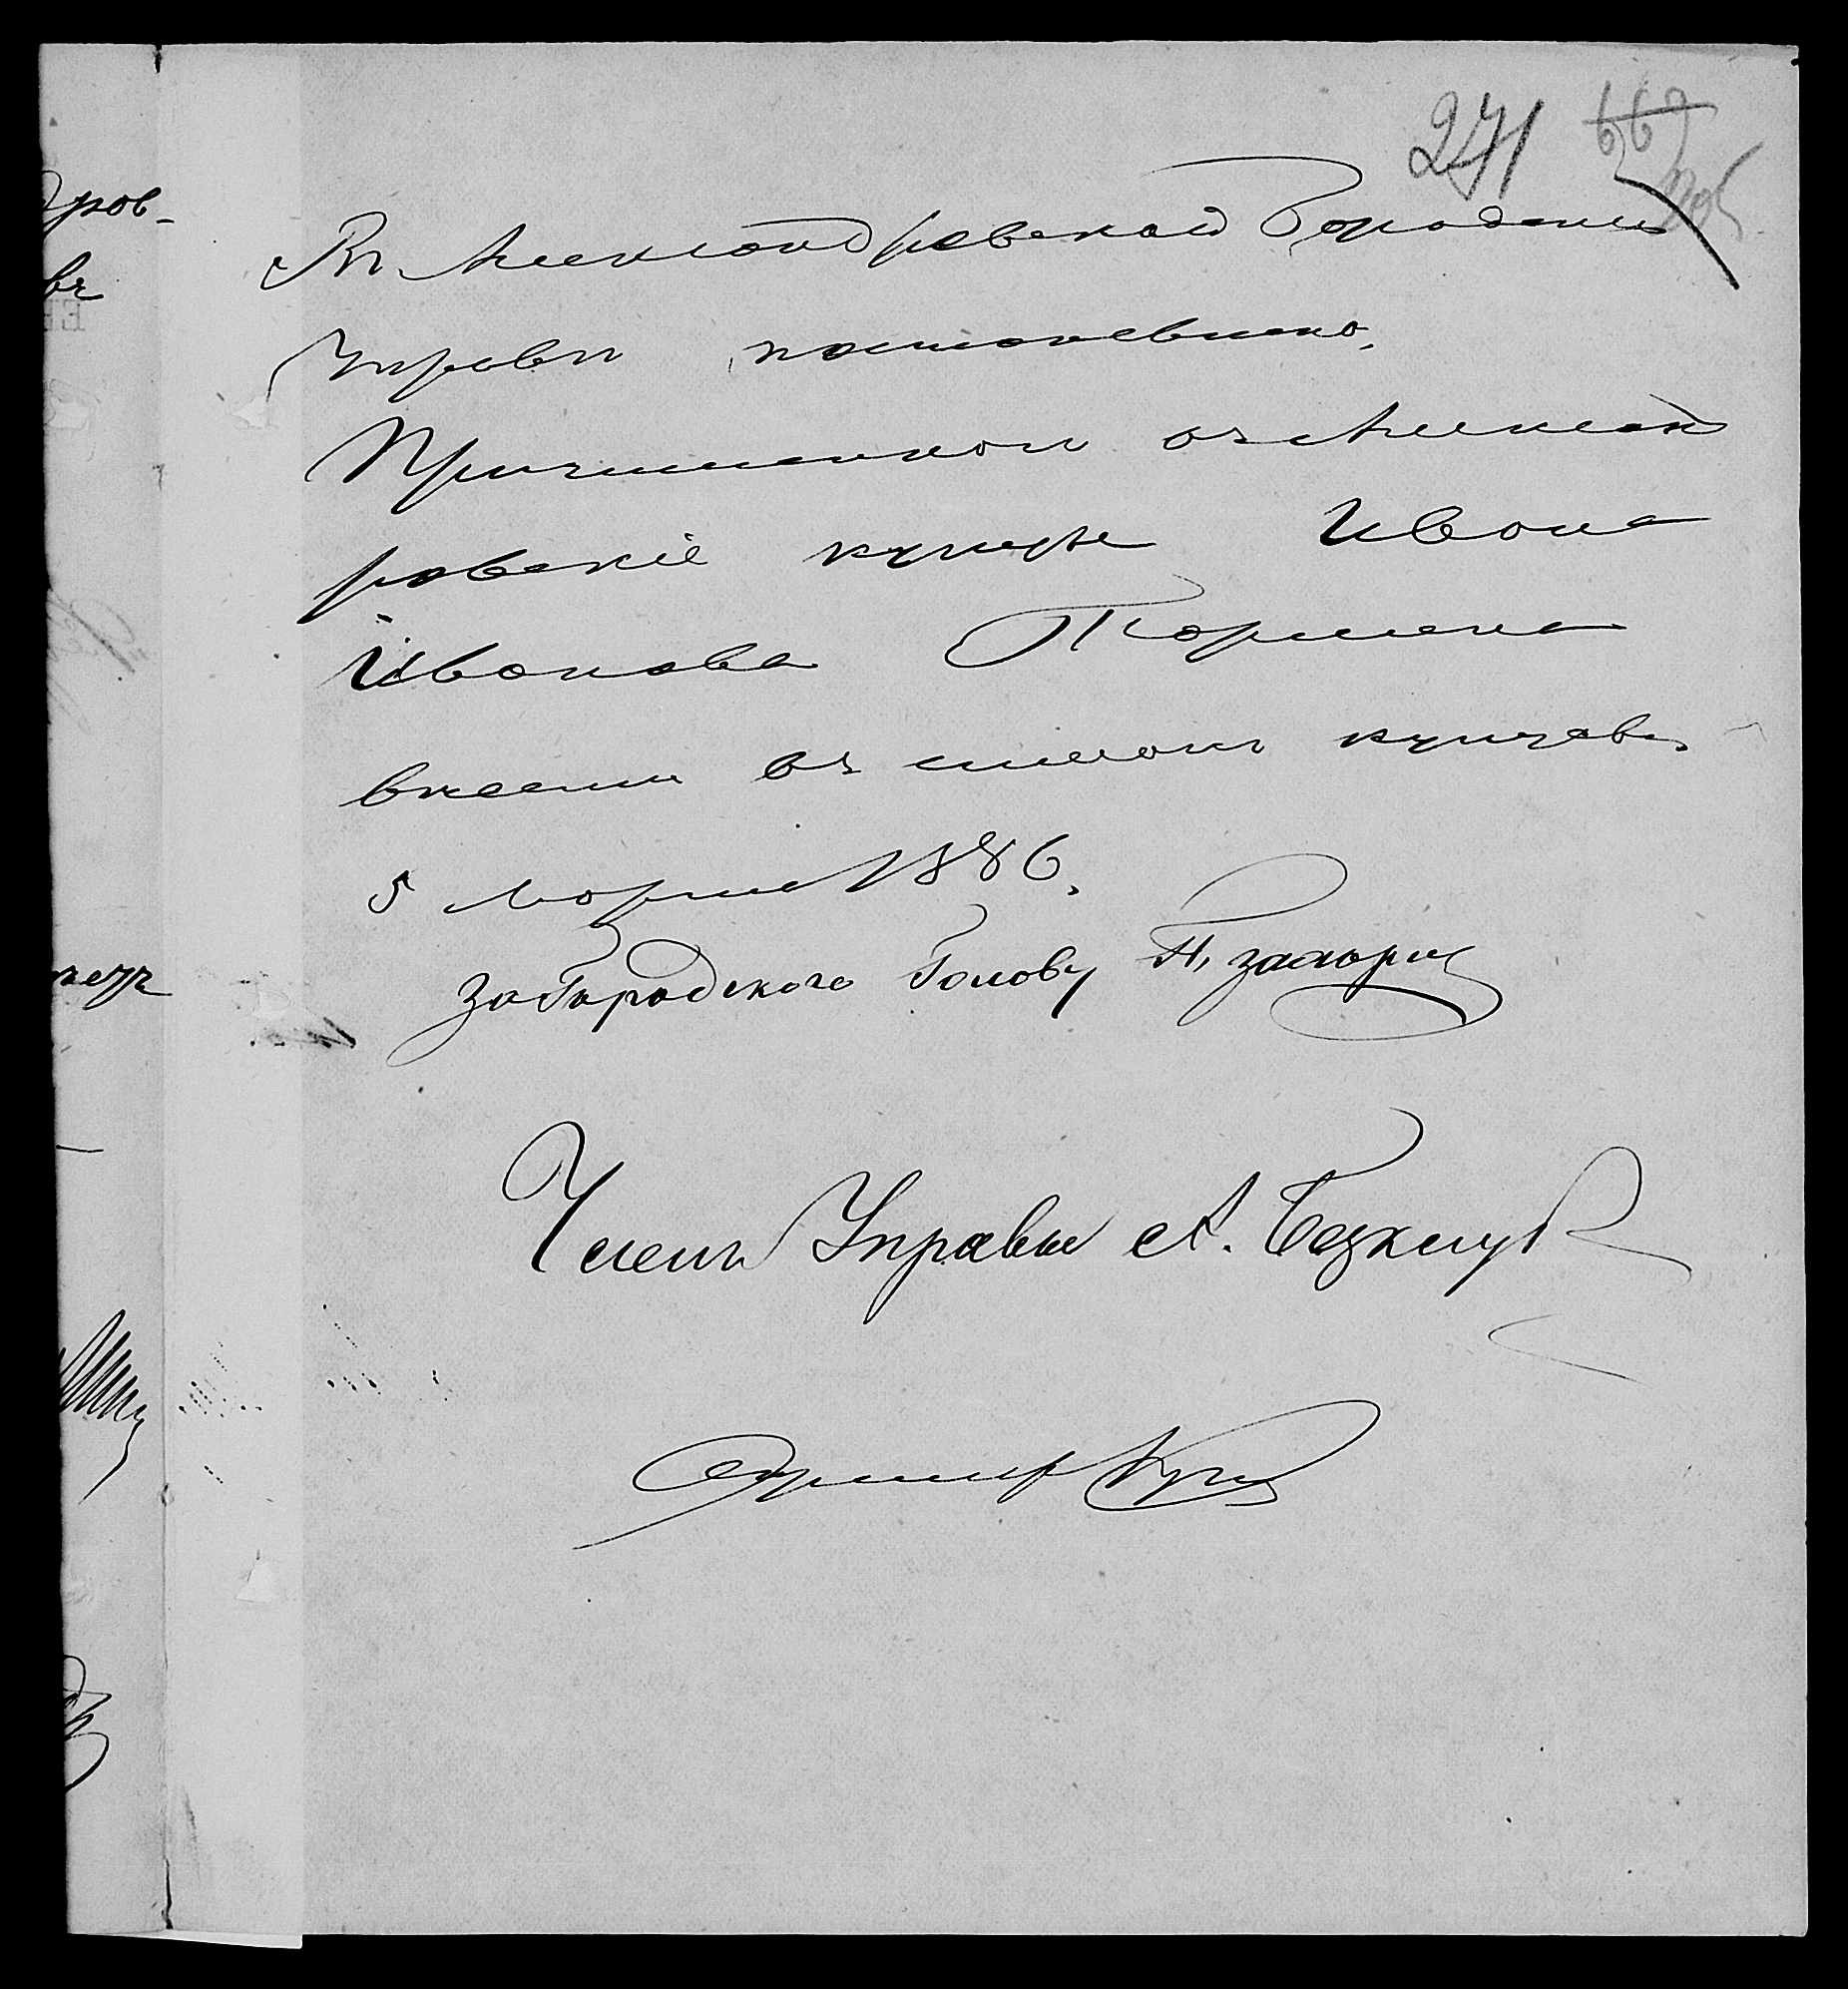 271
Въ Александровской Городской
Управѣ постановлено,
Причисленнаго въ Александ
ровскіе купцы Ивана
Иванова
внести въ списокъ купцовъ
5 Марта 1886.
За Городского Голову Н. Захарин
Членъ Управы А.